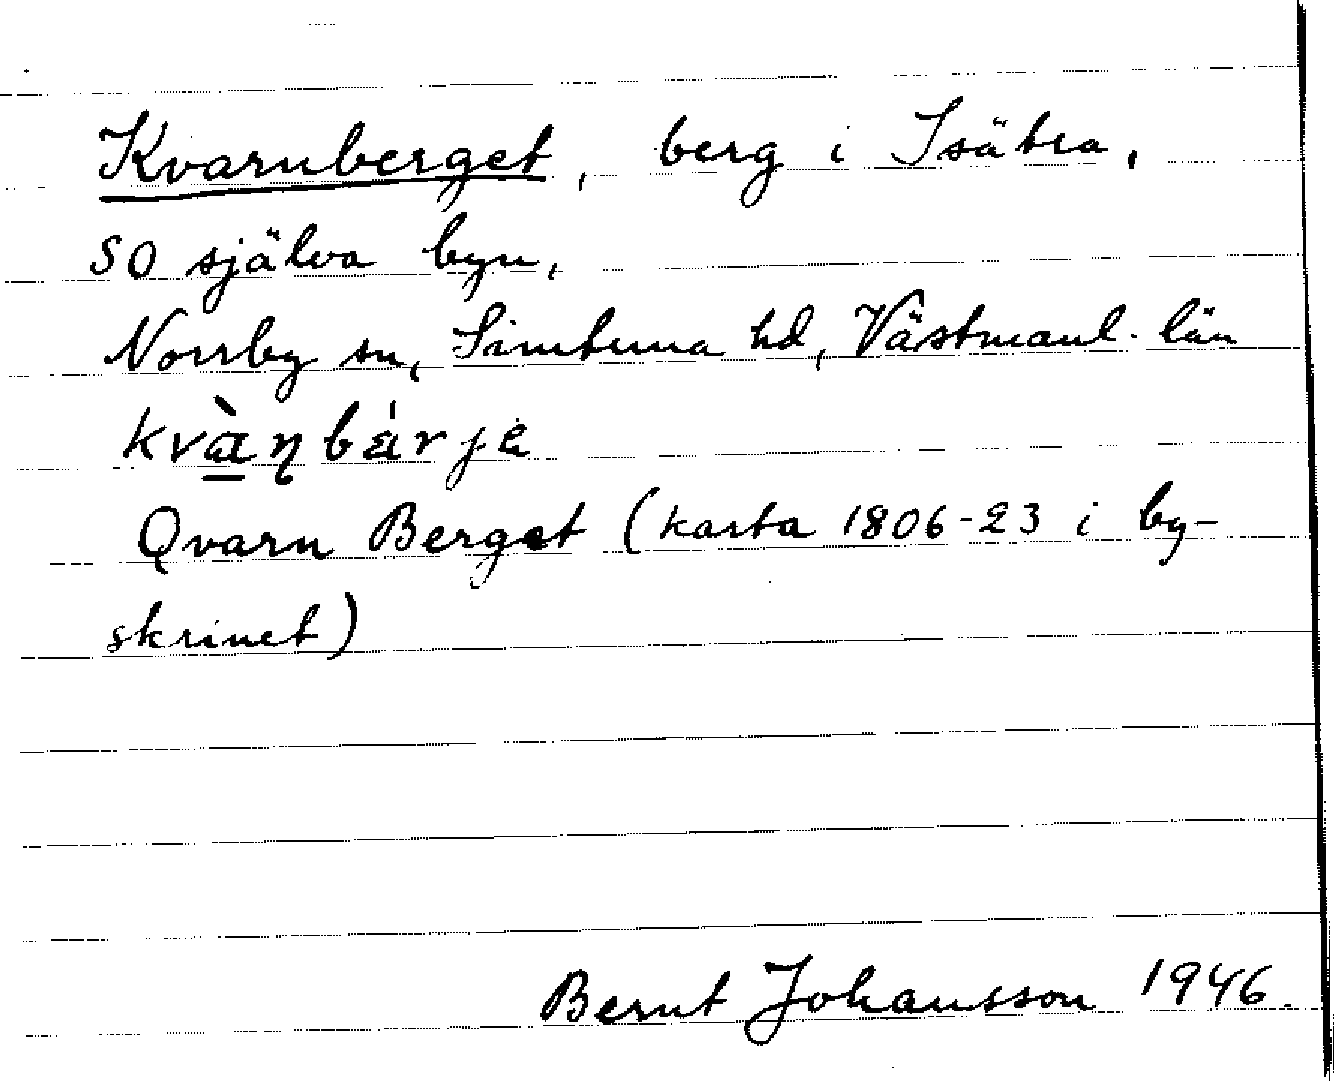 Kvarnberget, berg i Isätra,
SO själva byn,
Norrby sn, Simtuna hd, Västmanl. län
kvàɳbárjè
Qvarn Berget (karta 1806-23 i by-
skrinet)
Bernt Johansson 1946.